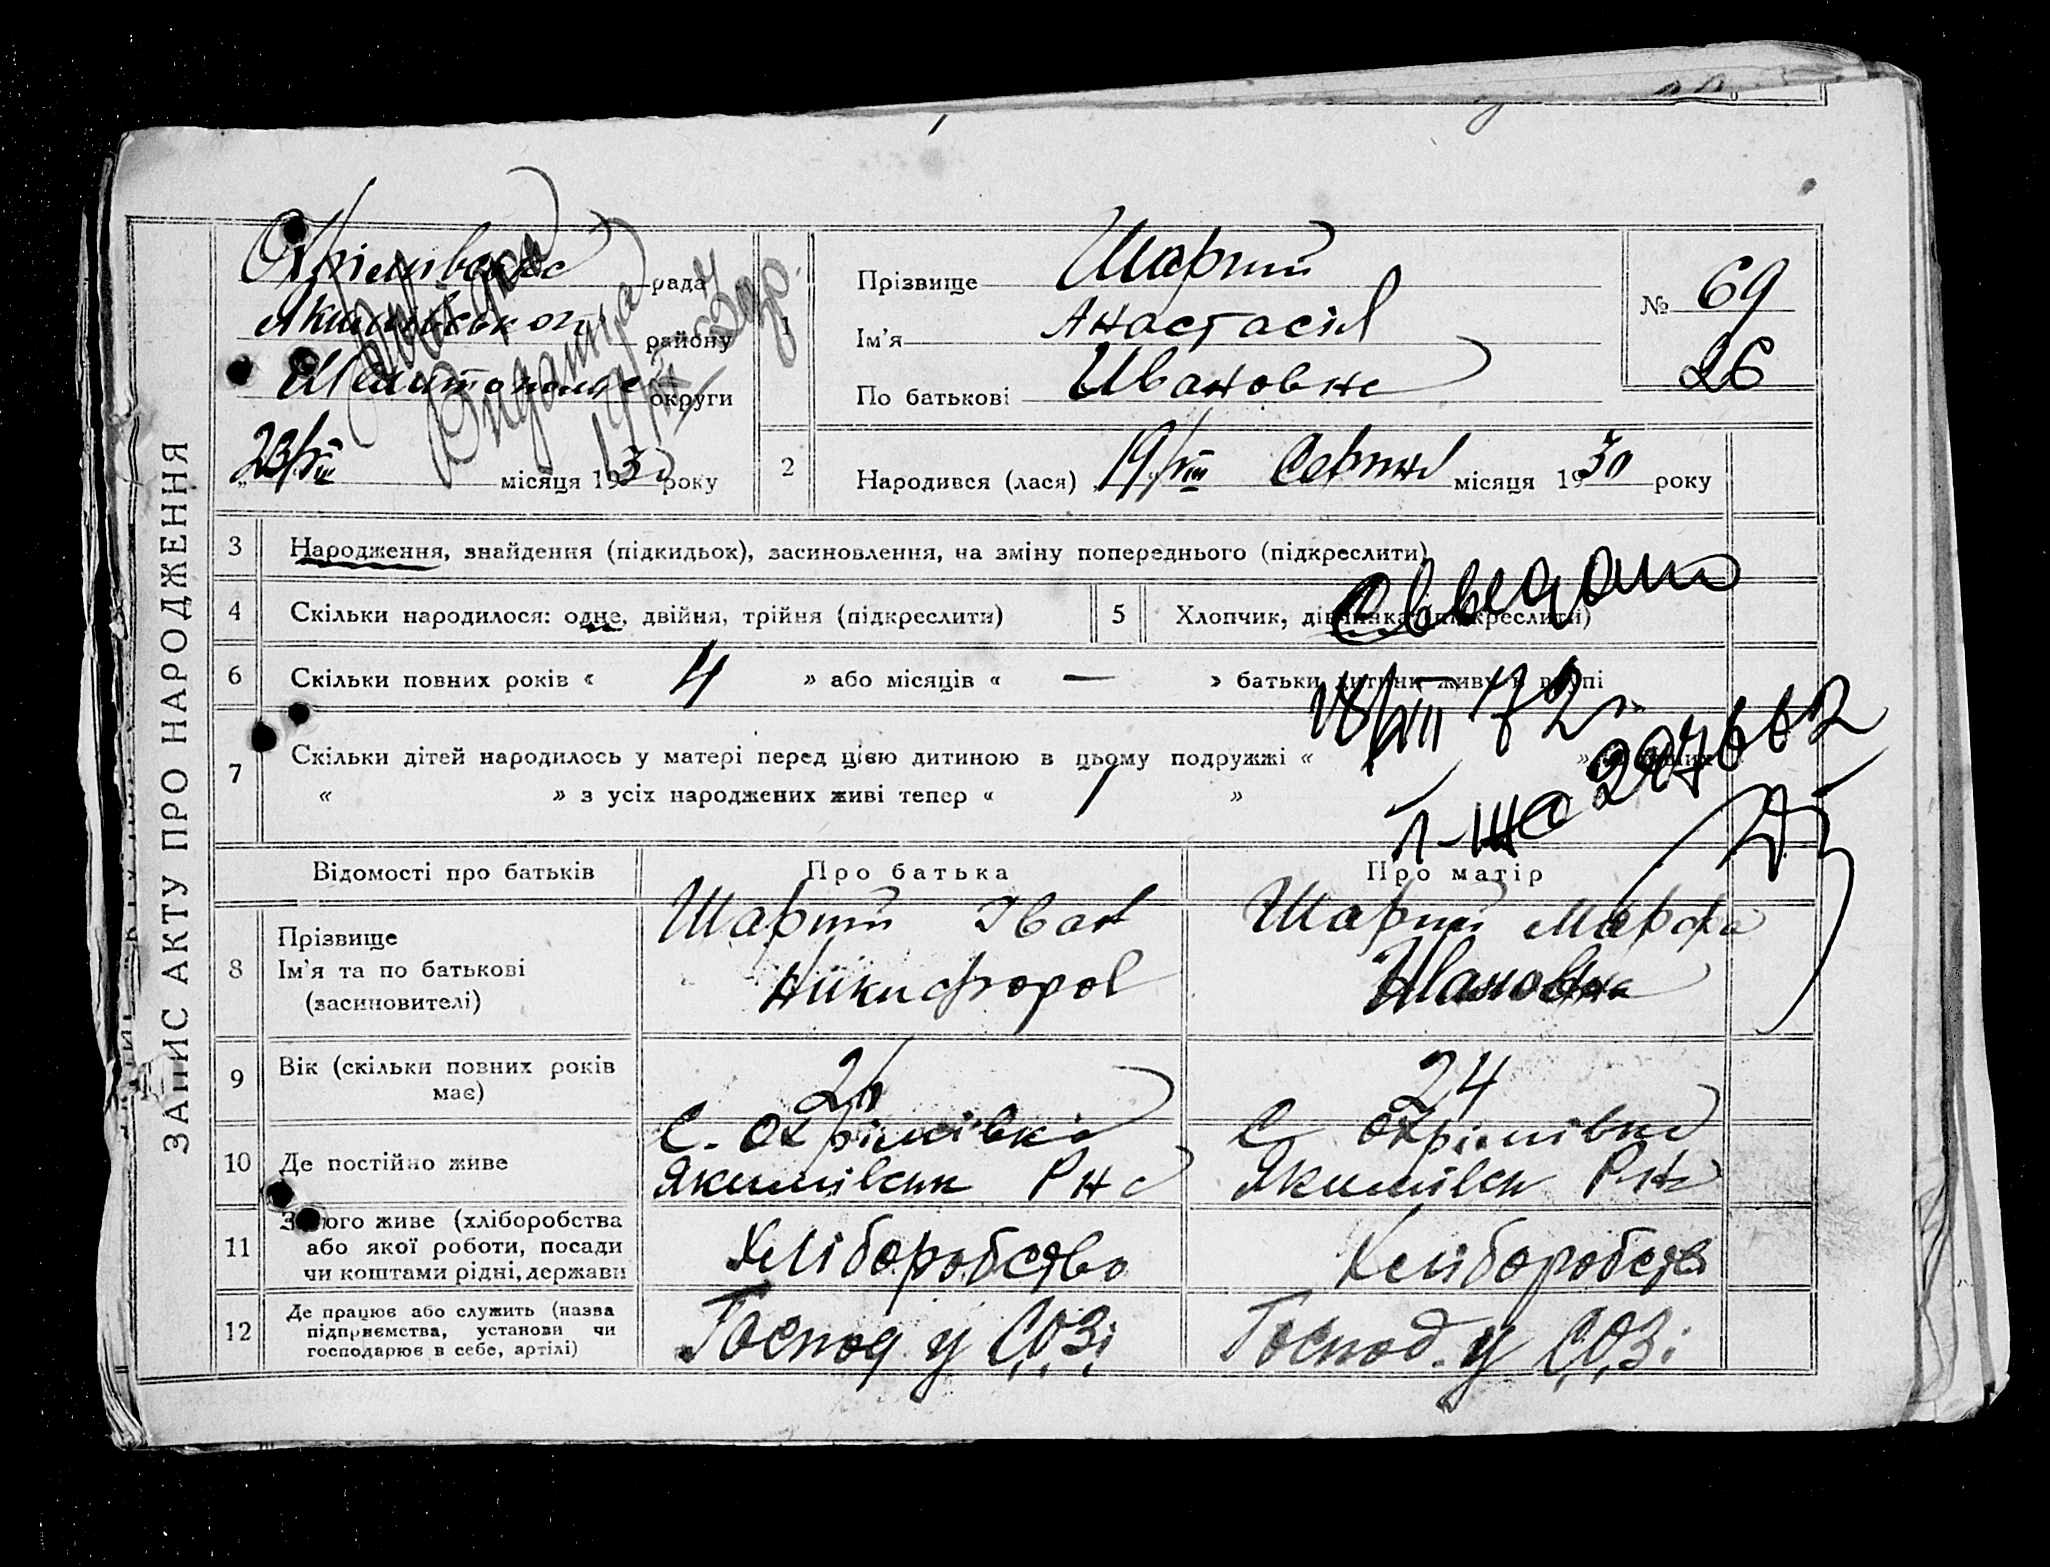 ЗАПИС АКТУ ПРО НАРОДЖЕННЯ
Охрімівська рада
Якимівського району
Мелитопольс округи
23/VIII місяця 1930 року
Виданна
1
Прізвище Шарий
Ім'я Анастасія
По батькові Ивановна
№ 69
26
2
Народився (лася) 19/VIII Серпня місяця 1930 року
3 Народження, знайдення (підкидьок), засиновлення, на зміну попереднього (підкреслити)
4 Скільки народилося: одне, двійня, трійня (підкреслити)
5 Хлопчик, дівчинка (підкреслити)
6 Скільки повних років « 4 » або місяців « — » батьки дитини живуть вкупі
7 Скільки дітей народилось у матері перед цією дитиною в цьому подружжі «
« » з усіх народжених живі тепер « 1 »
72
Відомості про батьків
Про батька
Про матір
8 Прізвище
Ім'я та по батькові
(засиновителі)
Шарий Іван
Никифоров
Шарий Марфа
Ивановна
9 Вік (скільки повних років
має)
26
24
10 Де постійно живе
С. Охрімівка
Якимівськ Рна
С Охрімівка
Якимівськ Рна
11 З чого живе (хліборобства
або якої роботи, посади
чи коштами рідні, держави
Хліборобство
Хліборобств
12 Де працює або служить (назва
підприємства, установи чи
господарює в себе, артілі)
Господ у С.О.Зі
Господ. у С.О.Зі